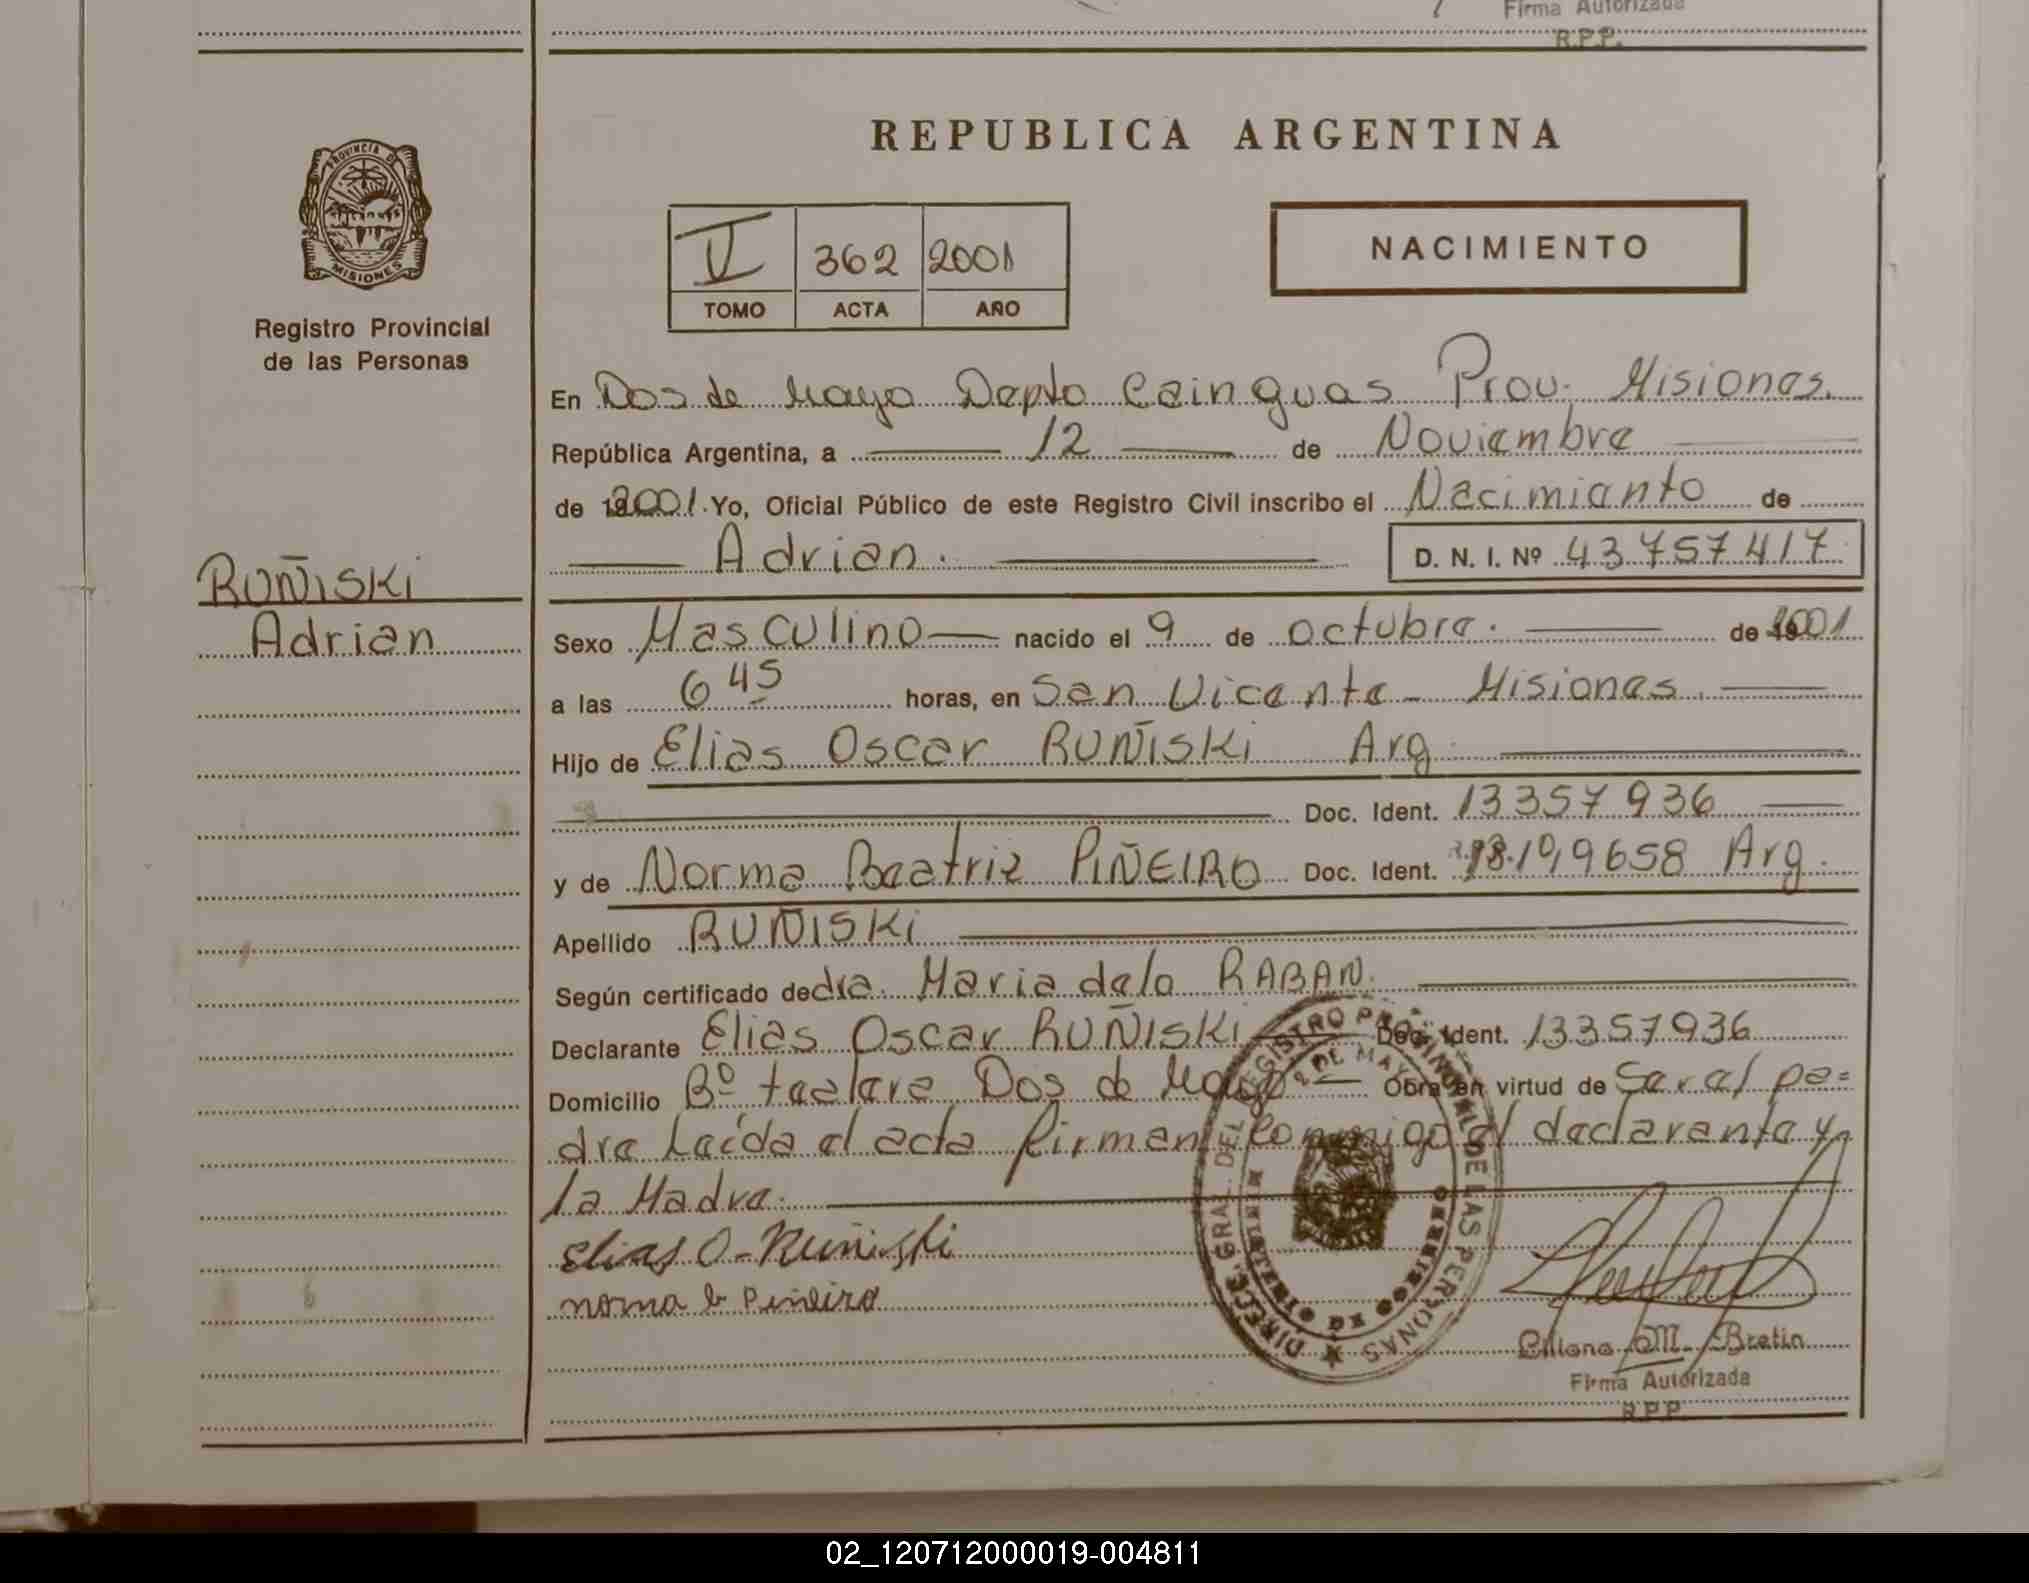 Firma Autorizada
R.P.P.
REPUBLICA ARGENTINA
PROVINCIA DE
MISIONES
Registro Provincial
de las Personas
V 362 2001
TOMO ACTA AÑO
NACIMIENTO
En Dos de Mayo Depto Cainguas Prov. Misiones.
República Argentina, a 12 de Noviembre
de 2001. Yo, Oficial Público de este Registro Civil inscribo el Nacimiento de
Adrian. D. N. I. Nº 43.757.417
RUÑISKI
Adrian
Sexo Masculino nacido el 9 de octubre. de 2001
a las 6 45 horas, en San Vicente - Misiones.
Hijo de Elias Oscar RUÑISKI Arg.
Doc. Ident. 13357936
y de Norma Beatriz PIÑEIRO Doc. Ident. Arg.
Apellido RUÑISKI
Según certificado de dra. Maria delo RABAN.
Declarante Elias Oscar RUÑISKI Doc. Ident. 13357936
Domicilio Bº Dos de Mayo Obra en virtud de Ser el pa=
dre Leída el acta firman conmigo el declarante y
la Madre.
Elias O. Ruñiski
norma b Piñeiro
DIRECC. GRAL. DEL REGISTRO PROVINCIAL DE LAS PERSONAS
2 DE MAYO
Liliana M. Bretin
Firma Autorizada
R.P.P.
02_120712000019-004811